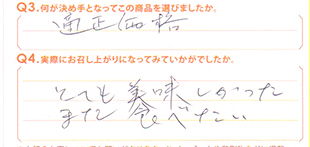 Q3.何が決め手となってこの商品を選びましたか。
適正価格
Q4.実際にお召し上がりになってみていかがでしたか。
とても美味しかった
また食べたい